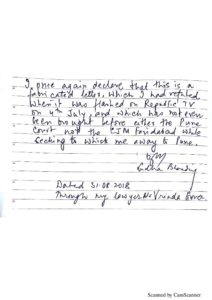 I once again declare that this is a
fabricated letter, which I had refuted
when it was flashed on Republic TV
on 4th July, and which has not even
been brought before either the Pune
Court not the CJM Faridabad while
seeking to whisk me away to Pune.
Dated 31.08.2018
Through my lawyer Ms Vrinda Grover
Scanned by CamScanner